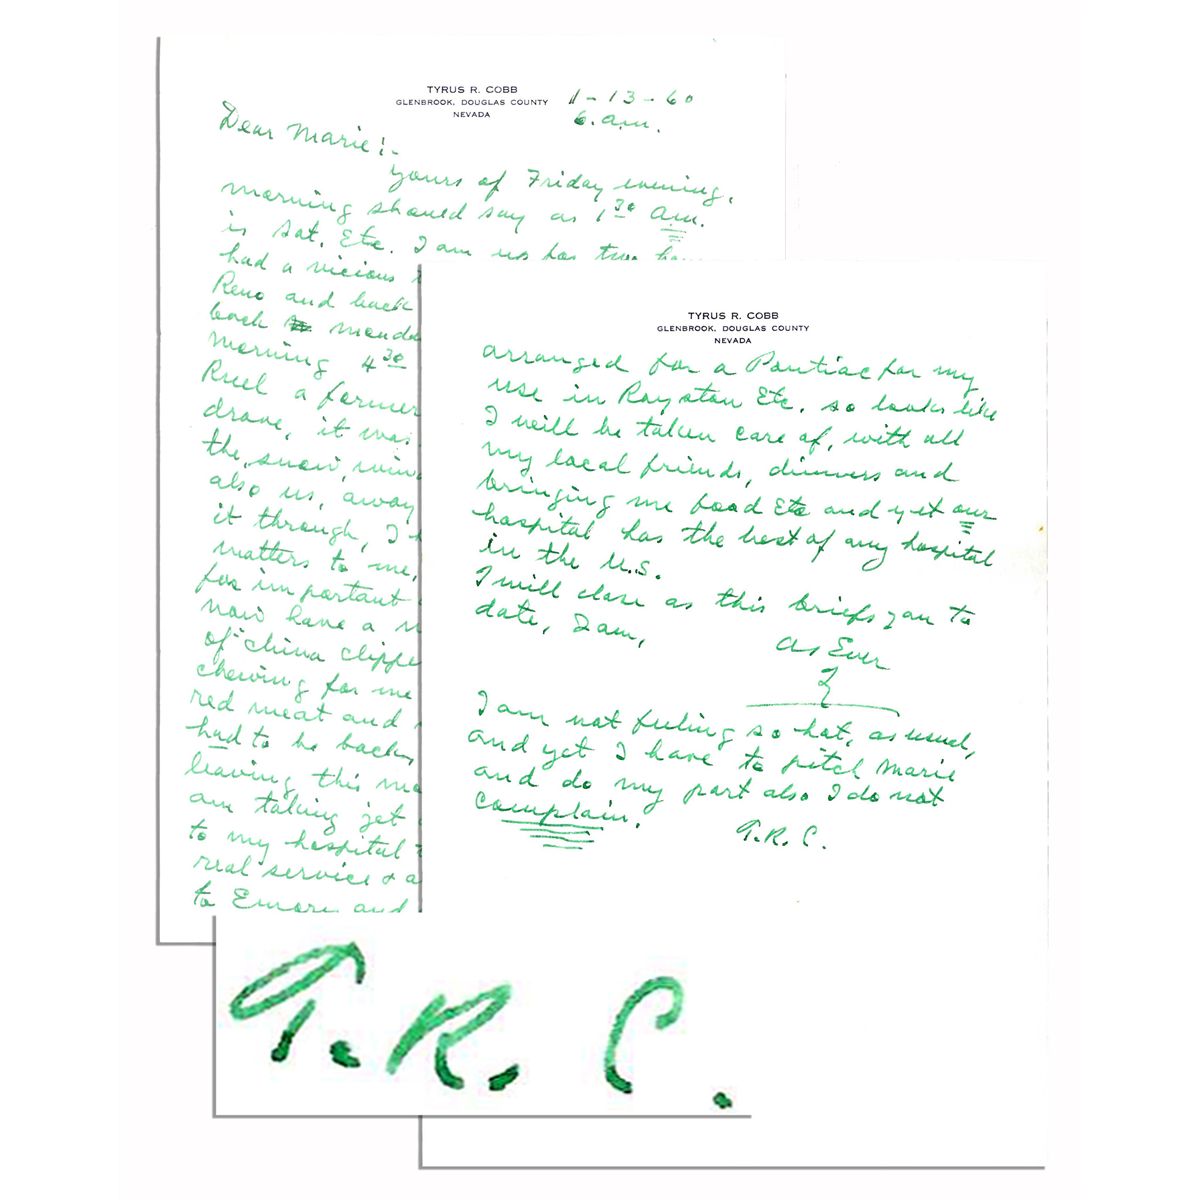 TYRUS R. COBB
GLENBROOK, DOUGLAS COUNTY
NEVADA
1-13-60
6. a.m.
Dear Marie:-
yours of Friday evening,
morning should say as 1 30 a.m.
is Sat. Etc. I am up for two
had a vicious
Reno and back
back
morning 4 30
Ruel a former
drove, it was
the, snow,
also us, away
it through, I
matters to me,
for important
now have a
of "china clippe
chewing for me
red meat and
had to be back,
leaving this
am taking jet
to my hospital
real service & a
to Emory and
TYRUS R. COBB
GLENBROOK, DOUGLAS COUNTY
NEVADA
arranged for a Pontiac for my
use in Royston Etc. so looks like
I will be taken care of, with all
my local friends, dinners and
bringing me food Etc and yet our
hospital has the best of any hospital
in the U.S.
I will close as this briefs you to
date, I am,
As Ever
T
I am not feeling so hot, as usual,
and yet I have to pitch Marie
and do my part also I do not
complain.
T.R.C.
T.R.C.